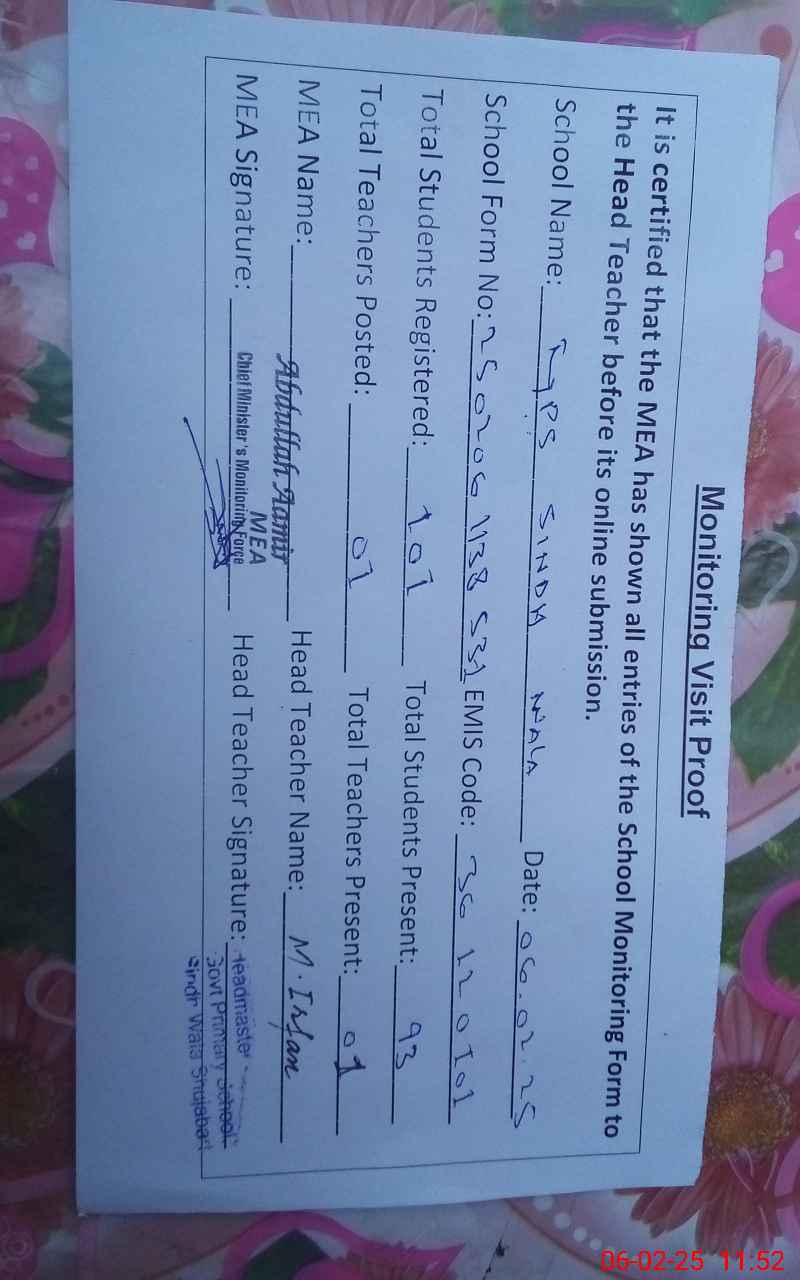 Monitoring Visit Proof
It is certified that the MEA has shown all entries of the School Monitoring Form to
the Head Teacher before its online submission.
School Name: GPS SINDH WALA Date: 06.02.25
School Form No: 250206 1138 531 EMIS Code: 36120101
Total Students Registered: 101 Total Students Present: 93
Total Teachers Posted: 01 Total Teachers Present: 01
MEA Name: Abdullah Aamir Head Teacher Name: M. Irfan
MEA
MEA Signature: Chief Minister's Monitoring Force Head Teacher Signature: Headmaster
Govt Primary School
Sindh Wala Shujabad
06-02-25 11:52